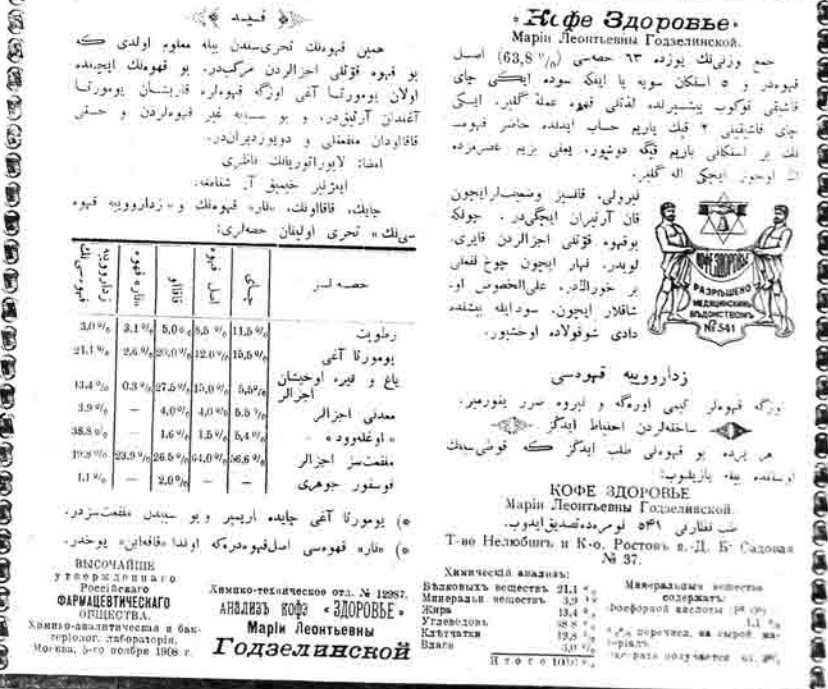 « قید »
همین قهوه‌نك تحری‌سندن بیله معلوم اولدی كه
بو قهوه قوّتلی اجزالردن مركبدر. بو قهوه‌نك ایچنده
اولان یومورتا آغی اوزگه قهوه‌لره قاریشان یومورتا
آغندان آرتیق‌در، و بو سببه غیر قهوه‌لردن و حتی
قاقاودان منفعتلی و دویوردیران‌در.
امضا: لابوراتوریانك ناظری
اینژنیر خیمیق آ. شفامفه.
چایك، قاقااونك، «نار» قهوه‌نك و «زدارووییه قهوه
سی‌نك» تحری اولینقان حصه‌لری:
حصه لر
چای
اصل قهوه
قاقاو
«نار» قهوه
زدارووییه قهوه‌سی‌نك
رطوبت 11,5 % 8,5 % 5,0 % 3.1 % 3,0 %
یومورتا آغی 15,5 % 12.0 % 20,0 % 2,6 % 21.1 %
یاغ و غیره اوخیشان اجزالر 5,5 % 15,0 % 27.5 % 0.3 % 13.4 %
معدنی اجزالر 5.5 % 4,0 % 4,0 % — 3.9 %
« اوغله‌وود » 5,4 % 1,5 % 1,6 % — 38.8 %
منفعت‌سز اجزالر 56,6 % 64,0 % 26.5 % 23,9 % 19.8 %
فوسفور جوهری — — 2,0 % — 1.1 %
*) یومورتا آغی چایده اریمیر و بو سببدن منفعت‌سزدر.
*) «نار» قهوه‌سی اصل قهوه‌دركه اوندا «قافه‌این» یوخدر.
ВЫСОЧАЙШЕ
утвержденнаго
Россiйскаго
ФАРМАЦЕВТИЧЕСКАГО
ОБЩЕСТВА.
Химико-аналитическая и бак-
терiолог. лабораторiя.
Москва, 5-го ноября 1908 г.
Химико-техническое отд. № 12987.
АНАЛИЗЪ КОФЭ «ЗДОРОВЬЕ»
Марiи Леонтьевны
Годзелинской
«Кофе Здоровье»
Марiи Леонтьевны Годзелинской.
جمع وزنی‌نك یوزده ٦٣ حصه‌سی (63,8 %) اصل
قهوه‌در و ٥ استكان سویه یا اینكه سوده ایكی چای
قاشیقی توكوب بیشیرلده لذتلی قهوه عمله گلیر. ایكی
چای قاشیقینی ٢ قپك یاریم حساب ایدنده حاضر قهوه
نك بر استكانی یاریم قپگه دوشور، یعنی بزیم عصرمزده
اك اوجوز ایچكی اله گلیر.
نیرولی، قانسیز وضعیف‌لر ایچون
قان آرتیران ایچگی‌در. چونكه
بوقهوه قوّتلی اجزالردن قایری،
لوبدر. نهار ایچون چوخ نفعلی
بر خوراكدر، علی‌الخصوص او،
شاقلار ایچون. سودایله بیشنده
دادی شوقولاده اوخشیور.
КОФЕ ЗДОРОВЬЕ
РАЗРѢШЕНО
МЕДИЦИНСКИМЪ
ВѢДОМСТВОМЪ
№ 541
زدارووییه قهوه‌سی
اوزگه قهوه‌لر كیمی اورەگه و نیروه ضرر یتورمیر.
ساخته‌لردن احتیاط ایدگز
هر یرده بو قهوه‌لی طلب ایدگز كه قوطی‌سینك
اوستنده بیله یازیلوب:
КОФЕ ЗДОРОВЬЕ
Марiи Леонтьевны Годзелинской.
طب نظارتی ٥٤١ نومره‌ده تصدیق ایدوب.
Т-во Нелюбинъ и К-о. Ростовъ н.-Д. Б. Садовая
№ 37.
Химическiй анализъ:
Бѣлковыхъ веществъ 21,1 %
Минеральн. веществъ 3,9 %
Жира 13,4 %
Углеводовъ 38 8 %
Клѣтчатки 19,8 %
Влаги 3,0 %
Итого 100 %
Минеральныя вещества
содержатъ:
Фосфорной кислоты
1.1 %
перечисл. на сырой ма-
терiалъ
получается 63. %